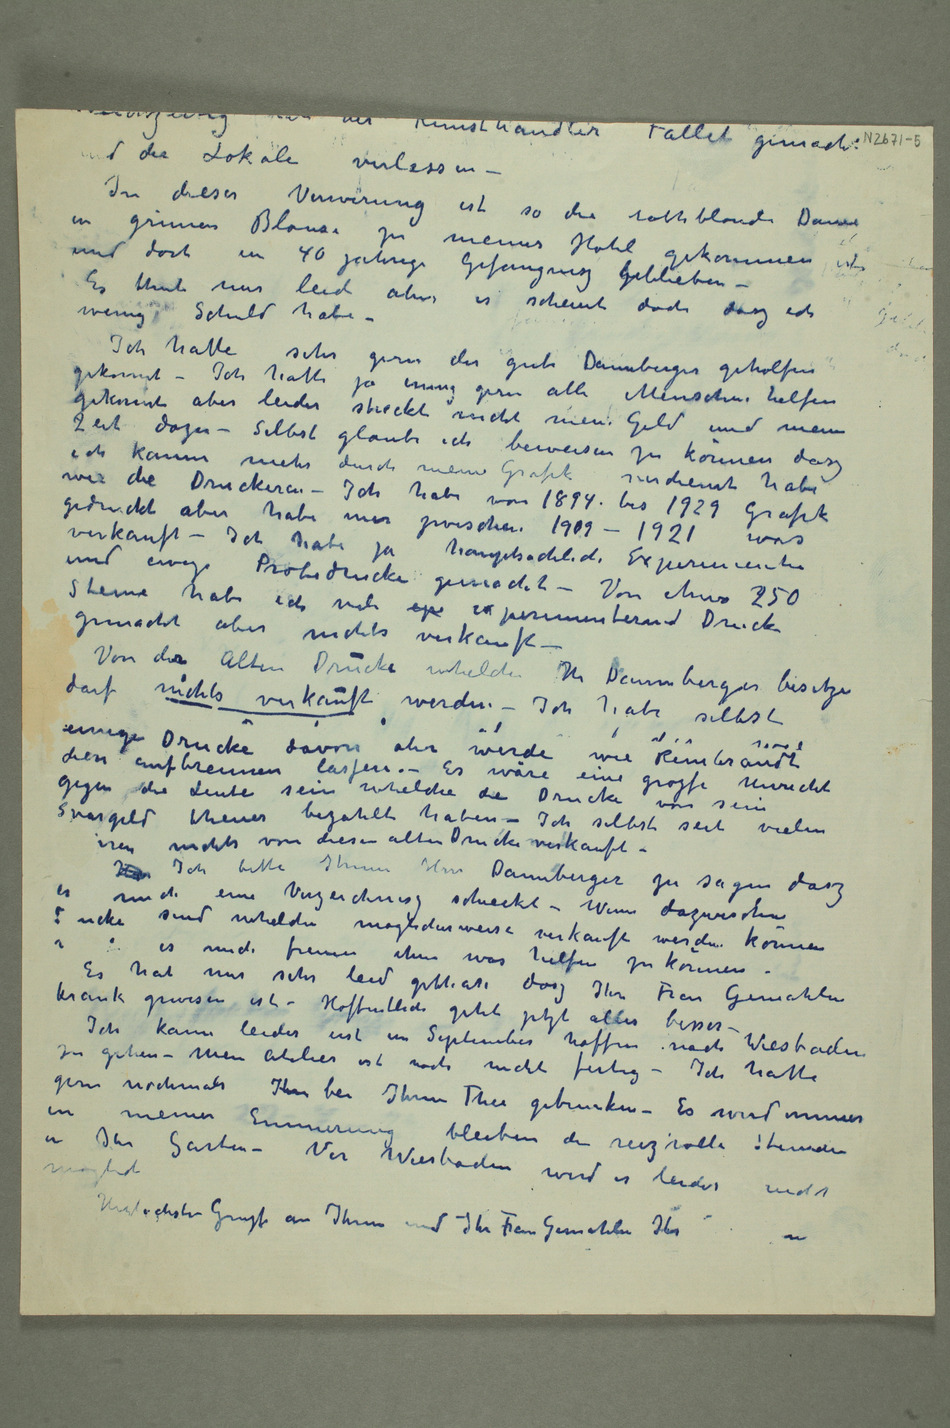 der Kunsthändler Fallet gemacht N2671-5
d die Lokale verlassen –
In dieser Verwirrung ist so die rothblonde Dame
in grünen Blouse zu meines Hotel gekommen
und dort in 40 jahrige Gefangnisz geblieben –
Es thut mir leid aber es scheint doch dasz ich
wenig Schuld habe –
Ich hatte sehr gern der gute Dannberger geholfen
gekonnt – Ich hatte ja immg gern alle Menschen helfen
gekonnt aber leider streckt nicht mein Geld und mein
Zeit dazu – Selbst glaube ich beweisen zu können dasz
ich kaum mehr durch meine Grafik verdient habe
wie die Druckeren – Ich habe von 1894. bis 1929 Grafik
gedruckt aber habe nur zwischen 1909 – 1921 was
verkauft – Ich habe ja hauptsachlich Experimente
und einige Probedrucke gemacht – Von etwa 250
Steine habe ich viele experimenternd Drucke
gemacht aber nichts verkauft –
Von der Alten Drucke whelche Hr Dannberger besitze
darf nichts verkauft werden – Ich habe selbst
einige Drucke davon aber werde wie Rembrandt
diese aufbrennen lassen. – Es wäre eine grosse Unrecht
gegen die Leute sein whelche die Drucke von sein
Spargeld theuer bezahlt haben – Ich selbst seit vielen
nichts von diesen alten Drucke verkauft –
Ich bitte Ihnen Herr Dannberger zu sagen dasz
er mich eine Verzeichnisz schickt – Wenn dazwischen
sind whelche moglicherweise verkauft werden können
es mich freuen ihm was helfen zu können –
Es hat mir sehr leid gethan dasz Ihr Frau Gemahlin
krank gewesen ist – Hoffentlich geht jetzt alles besser –
Ich kann leider erst im September hoffen nach Wiesbaden
zu gehen – Mein Atelier ist noch nicht fertig – Ich hatte
gern nochmals bei Ihnen Thee getrunken – Es wird immer
in meiner Erinnerung bleiben die reizvolle Stunden
in Ihr Garten – Vor Wiesbaden wird es leider nicht
moglich
Herzlichste Grusse an Ihnen und Ihr Frau Gemahlin Ihr